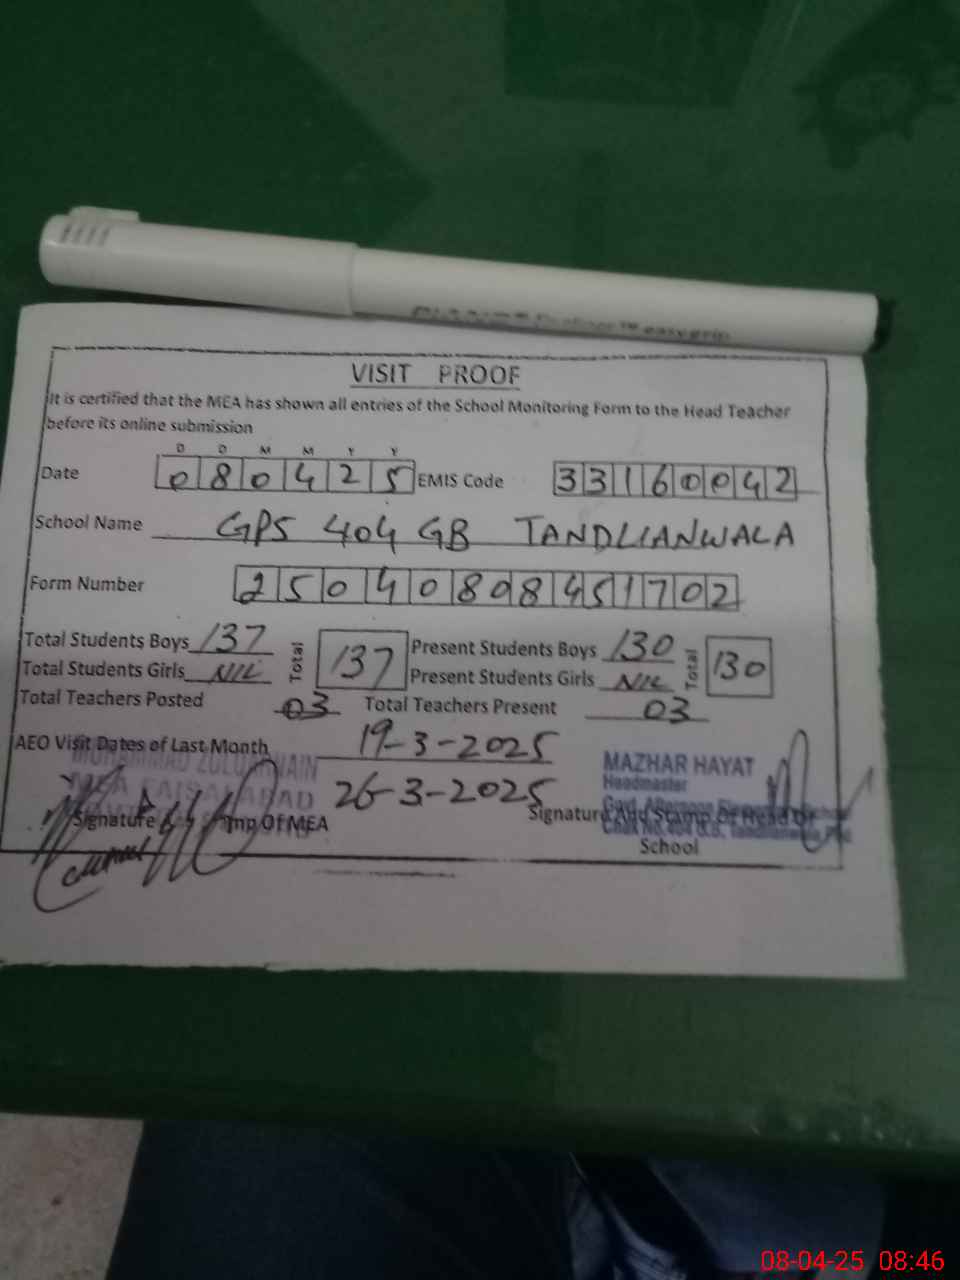 easygrip
VISIT PROOF
It is certified that the MEA has shown all entries of the School Monitoring Form to the Head Teacher
before its online submission
D D M M Y Y
Date 080425 EMIS Code 33160042
School Name GPS 404 GB TANDLIANWALA
Form Number 25040808451702
Total Students Boys 137 Total 137 Present Students Boys 130 Total 130
Total Students Girls NIL Present Students Girls NIL
Total Teachers Posted 03 Total Teachers Present 03
AEO Visit Dates of Last Month 19-3-2025
26-3-2025
MUHAMMAD ZULQARNAIN
MEA FAISALABAD
Signature & Stamp Of MEA
MAZHAR HAYAT
Headmaster
Govt. Afternoon Elementary School
Chak No.404 G.B. Tandlianwala
Signature And Stamp Of Head Of
School
08-04-25 08:46